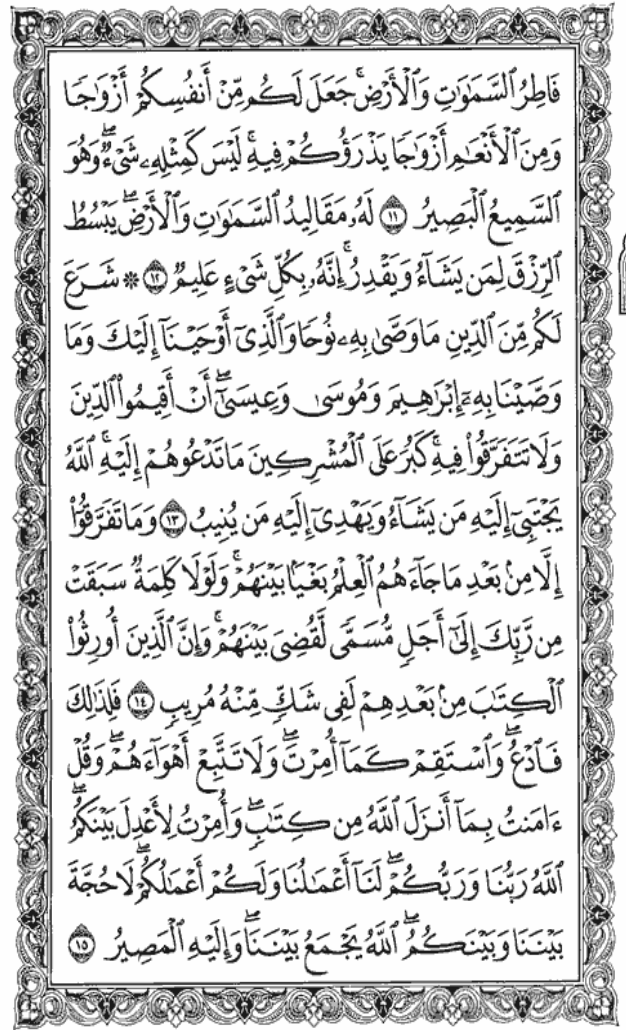 فَاطِرُ ٱلسَّمَٰوَٰتِ وَٱلْأَرْضِۚ جَعَلَ لَكُم مِّنْ أَنفُسِكُمْ أَزْوَٰجًا
وَمِنَ ٱلْأَنْعَٰمِ أَزْوَٰجًا يَذْرَؤُكُمْ فِيهِۚ لَيْسَ كَمِثْلِهِۦ شَىْءٌۖ وَهُوَ
ٱلسَّمِيعُ ٱلْبَصِيرُ ١١ لَهُۥ مَقَالِيدُ ٱلسَّمَٰوَٰتِ وَٱلْأَرْضِۖ يَبْسُطُ
ٱلرِّزْقَ لِمَن يَشَآءُ وَيَقْدِرُۚ إِنَّهُۥ بِكُلِّ شَىْءٍ عَلِيمٌ ١٢ ۞ شَرَعَ
لَكُم مِّنَ ٱلدِّينِ مَا وَصَّىٰ بِهِۦ نُوحًا وَٱلَّذِىٓ أَوْحَيْنَآ إِلَيْكَ وَمَا
وَصَّيْنَا بِهِۦٓ إِبْرَٰهِيمَ وَمُوسَىٰ وَعِيسَىٰٓۖ أَنْ أَقِيمُوا۟ ٱلدِّينَ
وَلَا تَتَفَرَّقُوا۟ فِيهِۚ كَبُرَ عَلَى ٱلْمُشْرِكِينَ مَا تَدْعُوهُمْ إِلَيْهِۚ ٱللَّهُ
يَجْتَبِىٓ إِلَيْهِ مَن يَشَآءُ وَيَهْدِىٓ إِلَيْهِ مَن يُنِيبُ ١٣ وَمَا تَفَرَّقُوٓا۟
إِلَّا مِنۢ بَعْدِ مَا جَآءَهُمُ ٱلْعِلْمُ بَغْيًۢا بَيْنَهُمْۚ وَلَوْلَا كَلِمَةٌ سَبَقَتْ
مِن رَّبِّكَ إِلَىٰٓ أَجَلٍ مُّسَمًّى لَّقُضِىَ بَيْنَهُمْۚ وَإِنَّ ٱلَّذِينَ أُورِثُوا۟
ٱلْكِتَٰبَ مِنۢ بَعْدِهِمْ لَفِى شَكٍّ مِّنْهُ مُرِيبٍ ١٤ فَلِذَٰلِكَ
فَٱدْعُۖ وَٱسْتَقِمْ كَمَآ أُمِرْتَۖ وَلَا تَتَّبِعْ أَهْوَآءَهُمْۖ وَقُلْ
ءَامَنتُ بِمَآ أَنزَلَ ٱللَّهُ مِن كِتَٰبٍۖ وَأُمِرْتُ لِأَعْدِلَ بَيْنَكُمُۖ
ٱللَّهُ رَبُّنَا وَرَبُّكُمْۖ لَنَآ أَعْمَٰلُنَا وَلَكُمْ أَعْمَٰلُكُمْۖ لَا حُجَّةَ
بَيْنَنَا وَبَيْنَكُمُۖ ٱللَّهُ يَجْمَعُ بَيْنَنَاۖ وَإِلَيْهِ ٱلْمَصِيرُ ١٥